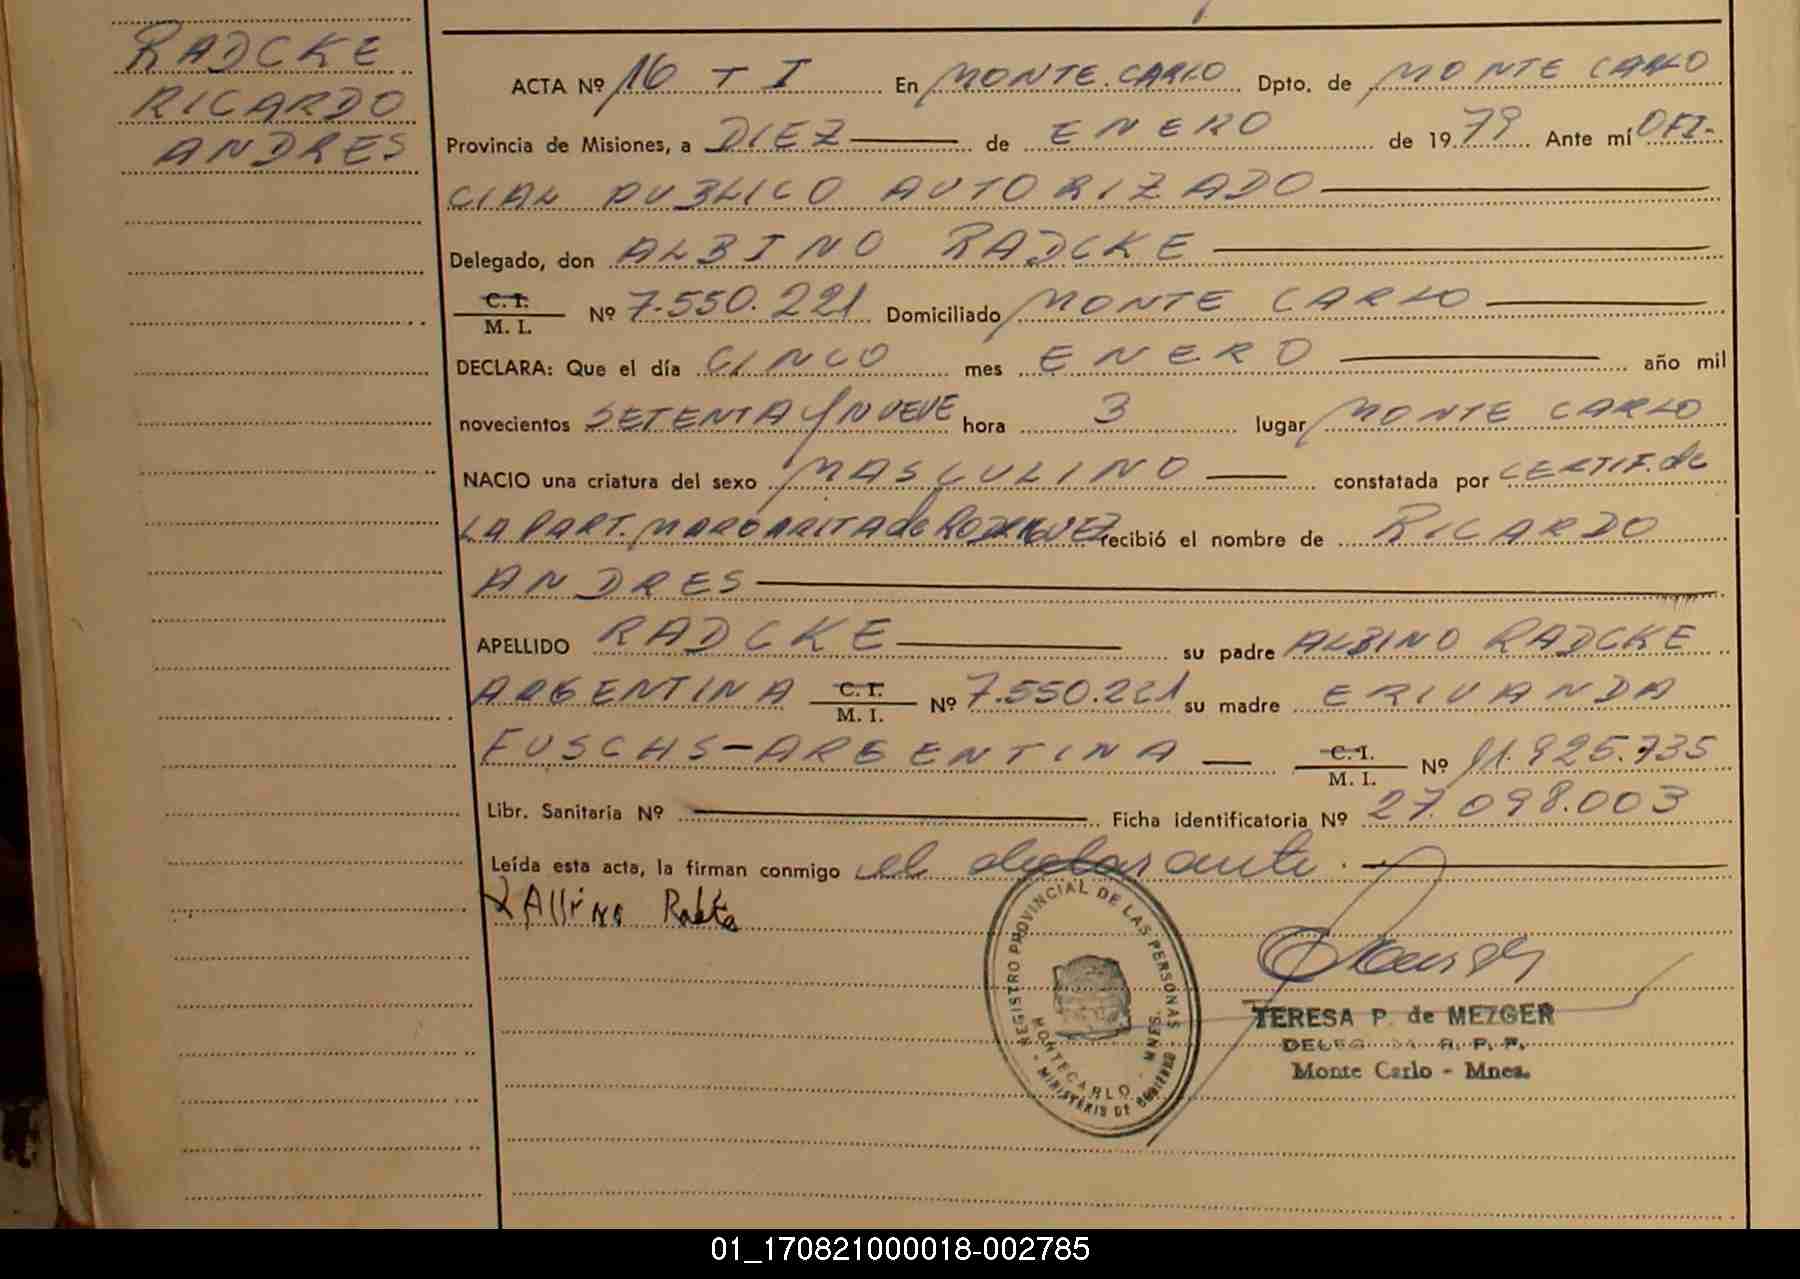 RADCKE
RICARDO
ANDRES
ACTA Nº 16 T I En MONTE.CARLO Dpto. de MONTE CARLO
Provincia de Misiones, a DIEZ de ENERO de 1979 Ante mí OFI-
CIAL PUBLICO AUTORIZADO
Delegado, don ALBINO RADCKE
C.I.
M. I. Nº 7.550.221 Domiciliado MONTE CARLO
DECLARA: Que el día CINCO mes ENERO año mil
novecientos SETENTA Y NUEVE hora 3 lugar MONTE CARLO
NACIO una criatura del sexo MASCULINO constatada por CERTIF. de
LA PART. MARGARITA de RODRIGUEZ recibió el nombre de RICARDO
ANDRES
APELLIDO RADCKE su padre ALBINO RADCKE
ARGENTINA C.I. M. I. Nº 7.550.221 su madre ERIVANDA
FUSCHS-ARGENTINA C.I. M. I. Nº 11.925.735
Libr. Sanitaria Nº Ficha identificatoria Nº 27.098.003
Leída esta acta, la firman conmigo el declarante.
REGISTRO PROVINCIAL DE LAS PERSONAS
MONTECARLO - MNES.
MINISTERIO DE GOBIERNO
TERESA P. de MEZGER
R. P. P.
Monte Carlo - Mnes.
01_170821000018-002785